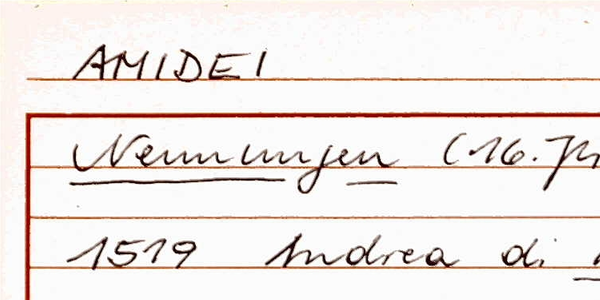 AMIDEI
Nennungen (16. Jh
1519 Andrea di